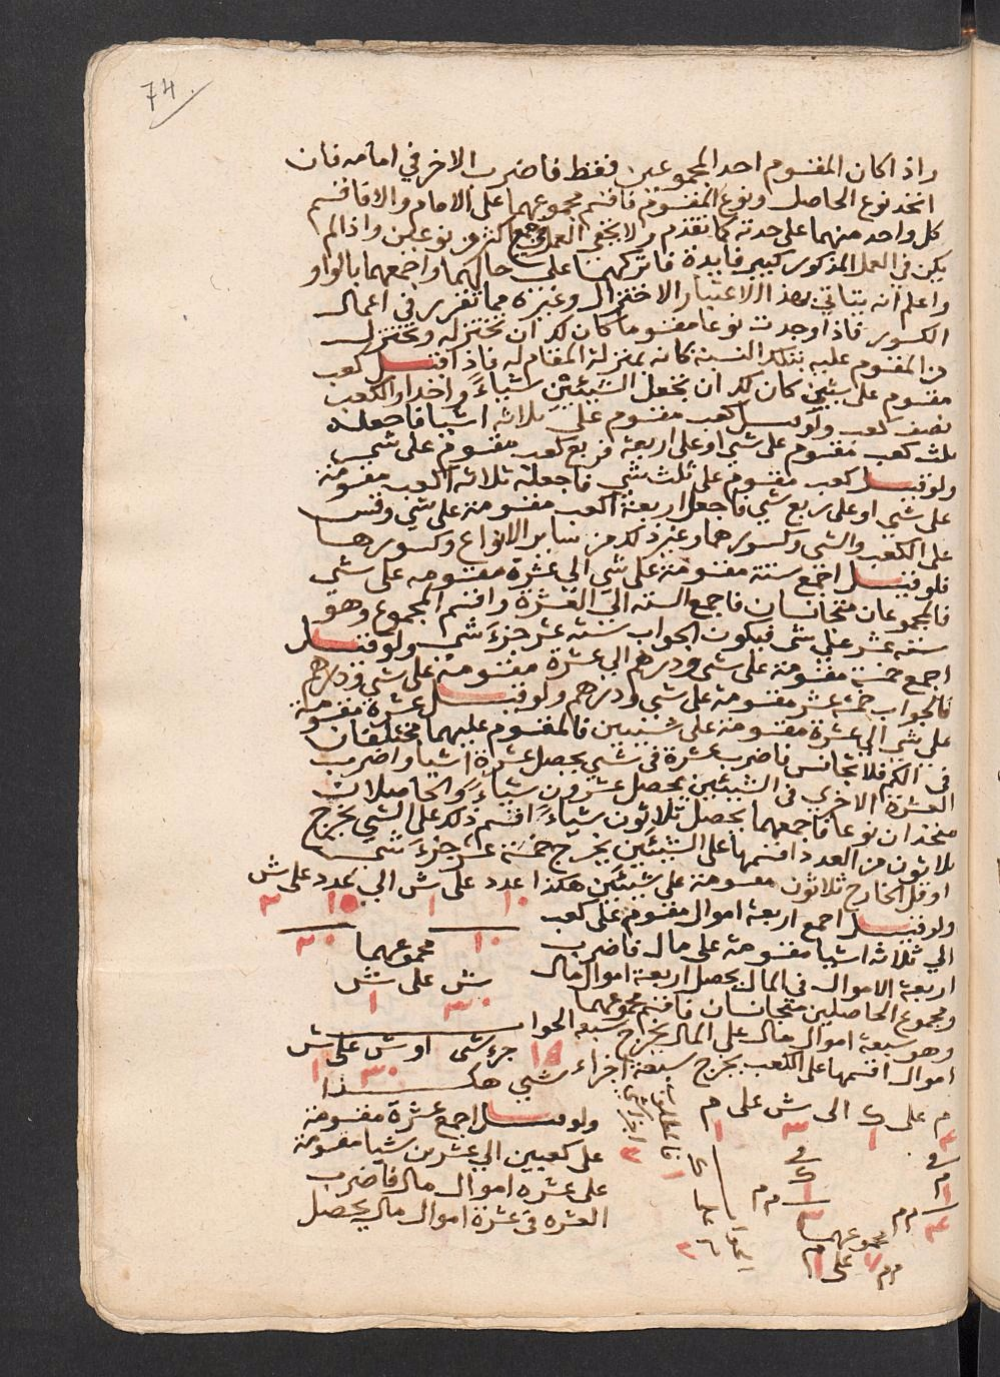 74
واذا كان المقسوم احد المجموعين فقط فاضرب الاخر في امامه فان
اتحد نوع الحاصل ونوع المقسوم فاقسم مجموعهما على الامام والا فاقسم
كل واحد منهما على حدته كما تقدم ولا يخفى العمل في جمع اكثر من نوعين واذا لم
يكن في العمل المذكور كبير فايدة فاتركهما على حالهما واجمعهما بالواو
واعلم انه يتاتي بهذا الاعتبار الاختزال وغيره مما تقرر في اعمال
الكسور فاذا وجدت نوعا مقسوما كان لك ان تختزله وتختزل
من المقسوم عليه بتلك النسبة كانه بمنزلة المقام له فاذا قيل كعب
مقسوم على شيئين كان لك ان تجعل الشيئين شياءً واحدا والكعب
نصف كعب ولو قيل كعب مقسوم على ثلاثة اشيا فاجعله
ثلث كعب مقسوم على شي او على اربعة فربع كعب مقسوم على شي
ولو قيل كعب مقسوم على ثلث شي فاجعله ثلاثة اكعب مقسومة
على شي او على ربع شي فاجعل اربعة اكعب مقسومة على شي وقس
على الكعب والشي وكسورهما وغير ذلك من ساير الانواع وكسورها
فلو قيل اجمع ستة مقسومة على شي الي عشرة مقسومه على شي
فالمجموعان متجانسان فاجمع الستة الى العشرة واقسم المجموع وهو
ستة عشر على شي فيكون الجواب ستة عشر جزء شي ولو قيل
اجمع خمسة مقسومة على شي ودرهم الي عشرة مقسومة على شي ودرهم
فالجواب خمسة عشر مقسومة على شي ودرهم ولو قيل عشرة مقسومة
على شي الي عشرة مقسومة على شيئين فالمقسوم عليهما مختلفان
في الكم فلا تجانس فاضرب عشرة في شي يحصل عشرة اشيا واضرب
العشرة الاخري في الشيئين يحصل عشرون شياءً والحاصلان
متحدان نوعا فاجمعهما يحصل ثلاثون شياءً اقسم ذلك على الشي يخرج
ثلاثون من العدد اقسمها على الشيئين يخرج خمسة عشر جزء شي
او قل الخارج ثلاثون مقسومة على شيئين هكذا عدد على ش الي عدد على ش
١٠ ١ ١٥ ٢
ولو قيل اجمع اربعة اموال مقسومة على كعب
١٠ ٢٠
الي ثلاثة اشيا مقسومة على مال فاضرب مجموعهما
اربعة الاموال في المال يحصل اربعة اموال مال ش على ش
٣٠ ١
ومجموع الحاصلين متجانسان فاقسم مجموعهما
وهو سبعة اموال مال على المال يخرج سبعة الجوا جزء شي او ش على ش
١٥ ٣٠ ١
اموال اقسمها على الكعب يخرج سبعة اجزاء شي هكذا
م على ك الى ش على م
٤ ١ ٣ ١
ولو قيل اجمع عشرة مقسومة
على كعبين الي عشرين شيا مقسومة
على عشرة اموال مال فاضرب
العشرة في عشرة اموال مال يحصل
في في
م ك
١ ١
م م م م
٤ ٣
مجموعهما
م م على م
٧ ١